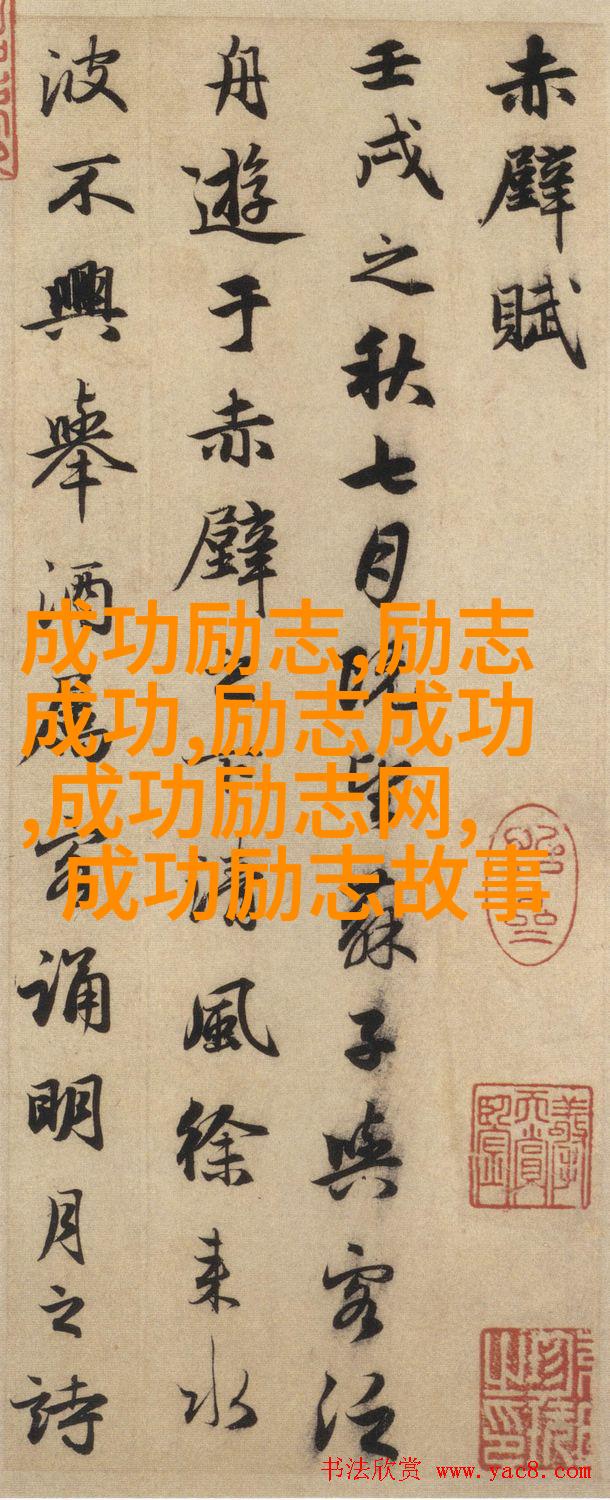 赤壁賦
壬戌之秋七月既望蘇子與客泛
舟遊于赤壁之下清風徐来水
波不興舉酒屬客誦明月之詩
成功励志,励志
成功,励志成功
,成功励志网,
成功励志故事
书法欣赏 www.yac8.com